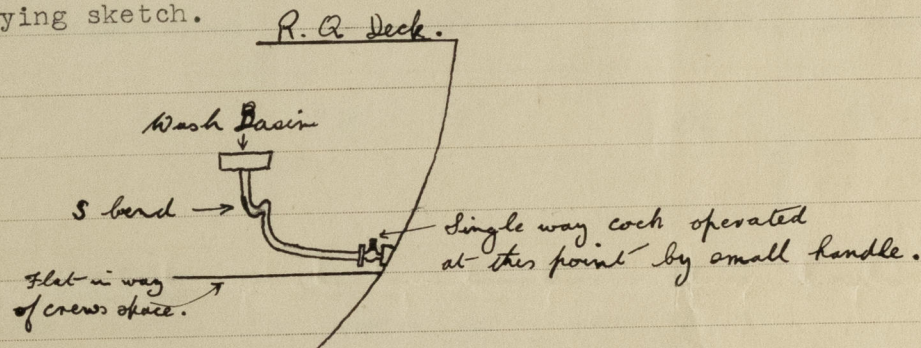 ying sketch.
R. Q Deck.
Wash Basin
S bend
Single way cock operated
at this point by small handle.
Flat in way
of crews space.